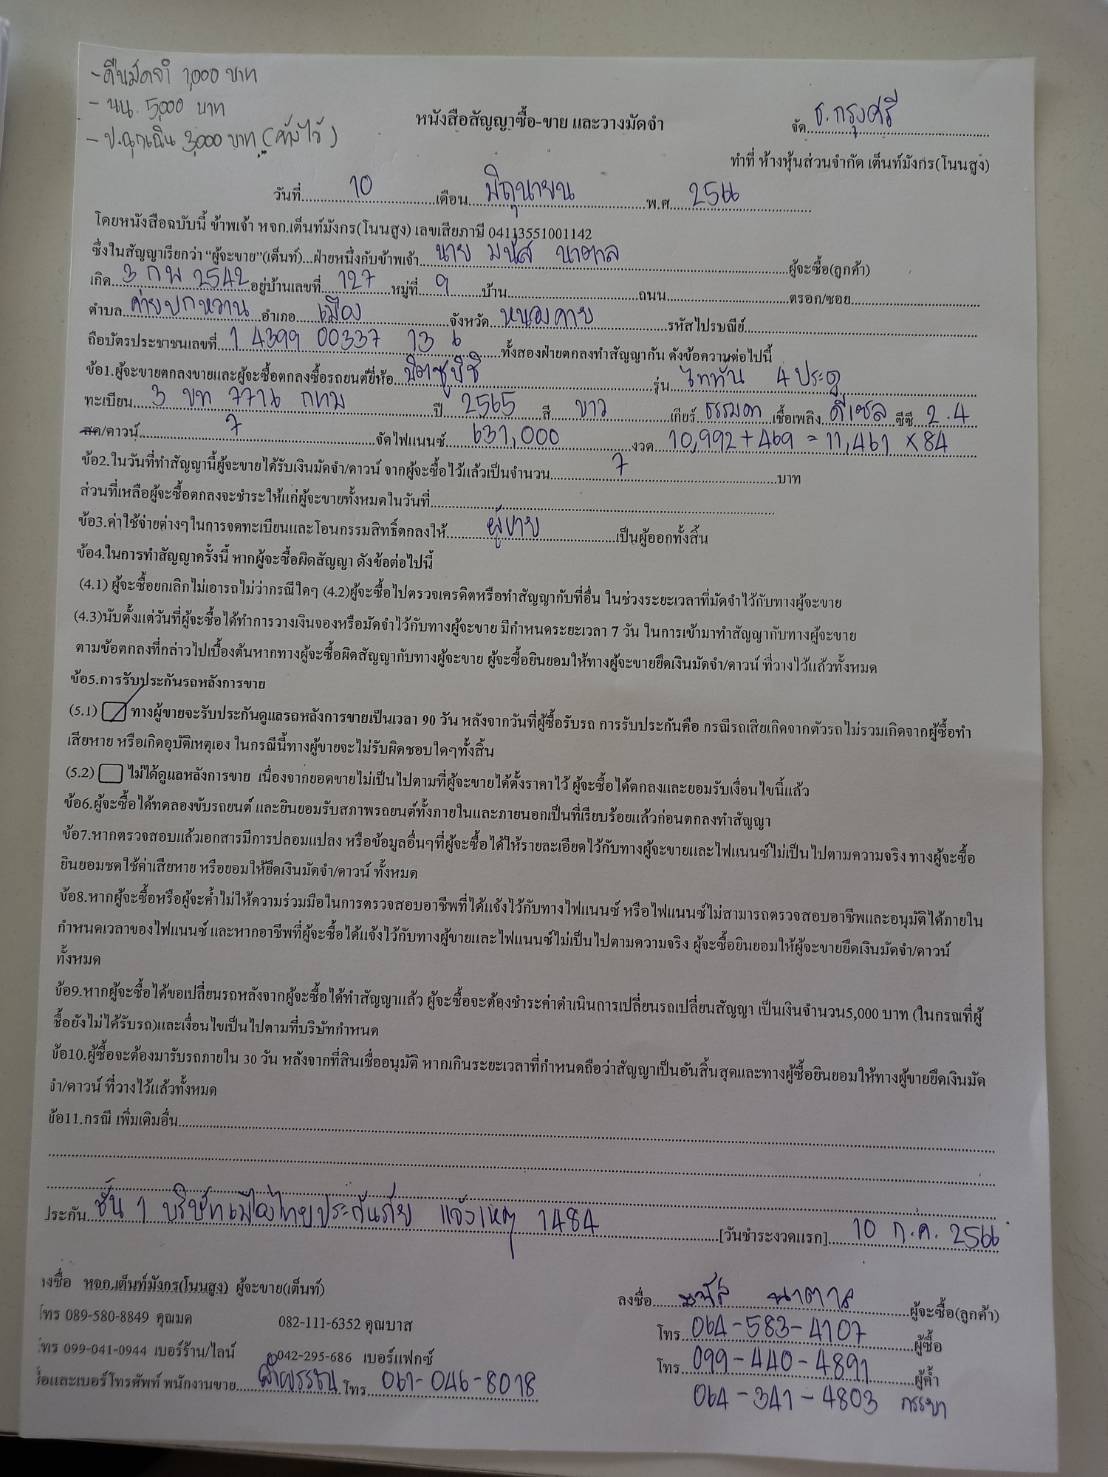 - คืนมัดจำ 1,000 บาท
- นน. 5000 บาท
- ป.ฉุกเฉิน 3,000 บาท
หนังสือสัญญาซื้อ-ขาย และวางมัดจำ
จัด ธ. กรุงศรี
ทำที่ ห้างหุ้นส่วนจำกัด เต็นท์มังกร(โนนสูง)
วันที่ 10 เดือน มิถุนายน พ.ศ. 2566
โดยหนังสือฉบับนี้ ข้าพเจ้า หจก.เต็นท์มังกร(โนนสูง) เลขเสียภาษี 04113551001142
ซึ่งในสัญญาเรียกว่า “ผู้จะขาย”(เต็นท์)...ฝ่ายหนึ่งกับข้าพเจ้า นาย มนัส นาตาล ผู้จะซื้อ(ลูกค้า)
เกิด 3 กพ 2542 อยู่บ้านเลขที่ 127 หมู่ที่ 9 บ้าน ถนน ตรอก/ซอย
ตำบล ค่ายบกหวาน อำเภอ เมือง จังหวัด หนองคาย รหัสไปรษณีย์
ถือบัตรประชาชนเลขที่ 1 4399 00337 13 6 ทั้งสองฝ่ายตกลงทำสัญญากัน ดังข้อความต่อไปนี้
ข้อ1.ผู้จะขายตกลงขายและผู้จะซื้อตกลงซื้อรถยนต์ยี่ห้อ มิตซูบิชิ รุ่น ไททัน 4 ประตู
ทะเบียน 3 ขท 7716 กทม ปี 2565 สี ขาว เกียร์ ธรรมดา เชื้อเพลิง ดีเซล ซีซี 2.4
สด/ดาวน์ 7 จัดไฟแนนซ์ 637,000 งวด 10,992 + 469 = 11,461 x 84
ข้อ2.ในวันที่ทำสัญญานี้ผู้จะขายได้รับเงินมัดจำ/ดาวน์ จากผู้จะซื้อไว้แล้วเป็นจำนวน 7 บาท
ส่วนที่เหลือผู้จะซื้อตกลงจะชำระให้แก่ผู้จะขายทั้งหมดในวันที่
ข้อ3.ค่าใช้จ่ายต่างๆในการจดทะเบียนและโอนกรรมสิทธิ์ตกลงให้ ผู้ขาย เป็นผู้ออกทั้งสิ้น
ข้อ4.ในการทำสัญญาครั้งนี้ หากผู้จะซื้อผิดสัญญา ดังข้อต่อไปนี้
(4.1) ผู้จะซื้อยกเลิกไม่เอารถไม่ว่ากรณีใดๆ (4.2)ผู้จะซื้อไปตรวจเครดิตหรือทำสัญญากับที่อื่น ในช่วงระยะเวลาที่มัดจำไว้กับทางผู้จะขาย
(4.3)นับตั้งแต่วันที่ผู้จะซื้อได้ทำการวางเงินจองหรือมัดจำไว้กับทางผู้จะขาย มีกำหนดระยะเวลา 7 วัน ในการเข้ามาทำสัญญากับทางผู้จะขาย
ตามข้อตกลงที่กล่าวไปเบื้องต้นหากทางผู้จะซื้อผิดสัญญากับทางผู้จะขาย ผู้จะซื้อยินยอมให้ทางผู้จะขายยึดเงินมัดจำ/ดาวน์ ที่วางไว้แล้วทั้งหมด
ข้อ5.การรับประกันรถหลังการขาย
(5.1) ทางผู้ขายจะรับประกันดูแลรถหลังการขายเป็นเวลา 90 วัน หลังจากวันที่ผู้ซื้อรับรถ การรับประกันคือ กรณีรถเสียเกิดจากตัวรถไม่รวมเกิดจากผู้ซื้อทำ
เสียหาย หรือเกิดอุบัติเหตุเอง ในกรณีนี้ทางผู้ขายจะไม่รับผิดชอบใดๆทั้งสิ้น
(5.2) ไม่ได้ดูแลหลังการขาย เนื่องจากยอดขายไม่เป็นไปตามที่ผู้จะขายได้ตั้งราคาไว้ ผู้จะซื้อได้ตกลงและยอมรับเงื่อนไขนี้แล้ว
ข้อ6.ผู้จะซื้อได้ทดลองขับรถยนต์ และยินยอมรับสภาพรถยนต์ทั้งภายในและภายนอกเป็นที่เรียบร้อยแล้วก่อนตกลงทำสัญญา
ข้อ7.หากตรวจสอบแล้วเอกสารมีการปลอมแปลง หรือข้อมูลอื่นๆที่ผู้จะซื้อได้ให้รายละเอียดไว้กับทางผู้จะขายและไฟแนนซ์ไม่เป็นไปตามความจริง ทางผู้จะซื้อ
ยินยอมชดใช้ค่าเสียหาย หรือยอมให้ยึดเงินมัดจำ/ดาวน์ ทั้งหมด
ข้อ8.หากผู้จะซื้อหรือผู้จะค้ำไม่ให้ความร่วมมือในการตรวจสอบอาชีพที่ได้แจ้งไว้กับทางไฟแนนซ์ หรือไฟแนนซ์ไม่สามารถตรวจสอบอาชีพและอนุมัติได้ภายใน
กำหนดเวลาของไฟแนนซ์ และหากอาชีพที่ผู้จะซื้อได้แจ้งไว้กับทางผู้ขายและไฟแนนซ์ไม่เป็นไปตามความจริง ผู้จะซื้อยินยอมให้ผู้จะขายยึดเงินมัดจำ/ดาวน์
ทั้งหมด
ข้อ9.หากผู้จะซื้อได้ขอเปลี่ยนรถหลังจากผู้จะซื้อได้ทำสัญญาแล้ว ผู้จะซื้อจะต้องชำระค่าดำเนินการเปลี่ยนรถเปลี่ยนสัญญา เป็นเงินจำนวน5,000 บาท (ในกรณที่ผู้
ซื้อยังไม่ได้รับรถ)และเงื่อนไขเป็นไปตามที่บริษัทกำหนด
ข้อ10.ผู้ซื้อจะต้องมารับรถภายใน 30 วัน หลังจากที่สินเชื่ออนุมัติ หากเกินระยะเวลาที่กำหนดถือว่าสัญญาเป็นอันสิ้นสุดและทางผู้ซื้อยินยอมให้ทางผู้ขายยึดเงินมัด
จำ/ดาวน์ ที่วางไว้แล้วทั้งหมด
ข้อ11.กรณี เพิ่มเติมอื่น
ประกัน ชั้น 1 บริษัทเมืองไทยประกันภัย แจ้งเหตุ 1484 [วันชำระงวดแรก] 10 ก.ค. 2566
ลงชื่อ หจก.เต็นท์มังกร(โนนสูง) ผู้จะขาย(เต็นท์)
ลงชื่อ มนัส นาตาล ผู้จะซื้อ(ลูกค้า)
โทร 089-580-8849 คุณมด 082-111-6352 คุณบาส
โทร 064-583-4107 ผู้ซื้อ
โทร 099-041-0944 เบอร์ร้าน/ไลน์ 042-295-686 เบอร์แฟกซ์
โทร 099-440-4891 ผู้ค้ำ
ชื่อและเบอร์โทรศัพท์ พนักงานขาย โทร 061-046-8018
064-341-4803 ภรรยา